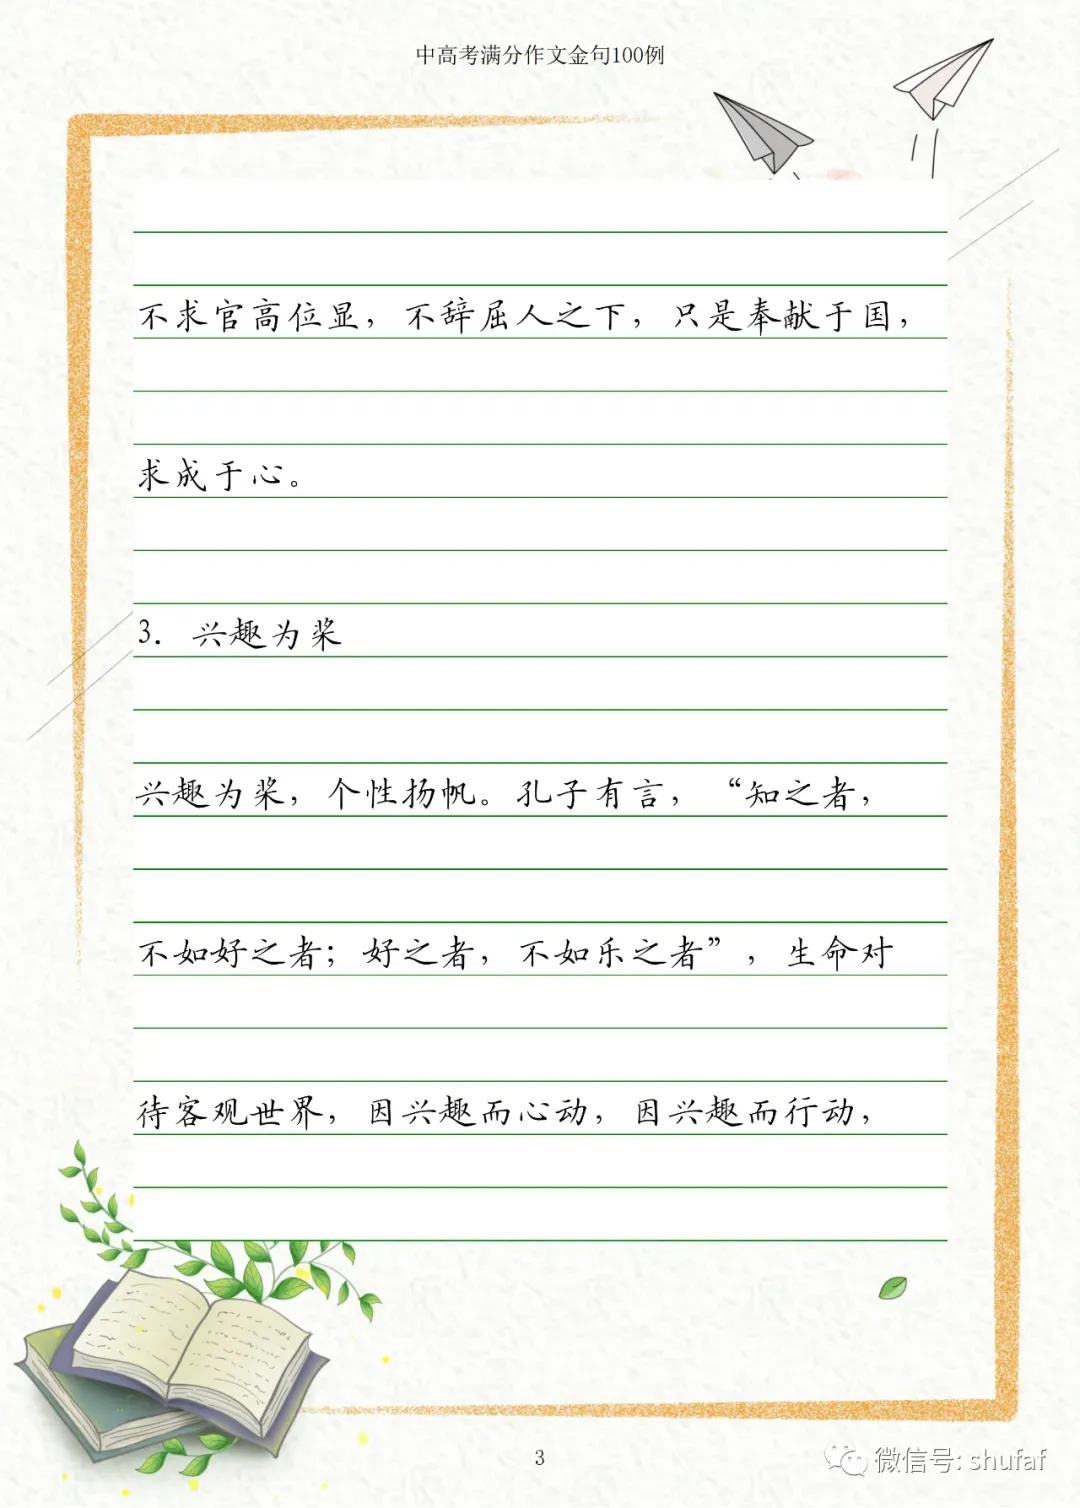 中高考满分作文金句100例
不求官高位显，不辞屈人之下，只是奉献于国，
求成于心。
3. 兴趣为桨
兴趣为桨，个性扬帆。孔子有言，“知之者，
不如好之者；好之者，不如乐之者”，生命对
待客观世界，因兴趣而心动，因兴趣而行动，
3
微信号: shufaf